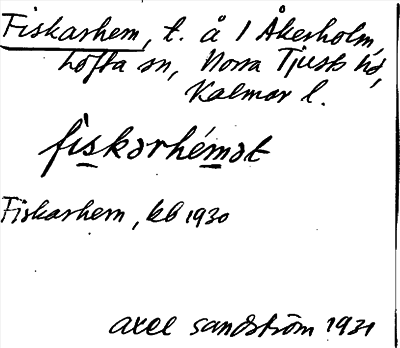 Fiskarhem, t. å 1 Åkerholm,
Lofta sn, Norra Tjusts hd,
Kalmar l.
fìskarhémət
Fiskarhem, kb 1930
Axel Sandström 1931